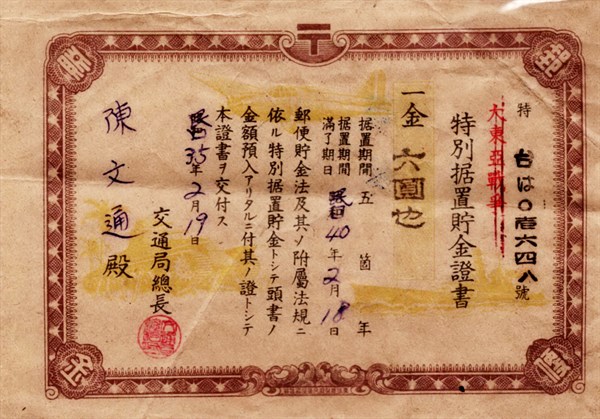 〒
特 台は0壱六四八號
大東亞戰爭
特別据置貯金證書
一金 六圓也
据置期間 五箇年
据置期間滿了期日 昭和40年2月18日
郵便貯金法及其ノ附屬法規ニ
依ル特別据置貯金トシテ頭書ノ
金額預入アリタルニ付其ノ證トシテ
本證書ヲ交付ス
昭和35年2月19日
交通局總長
陳文通殿